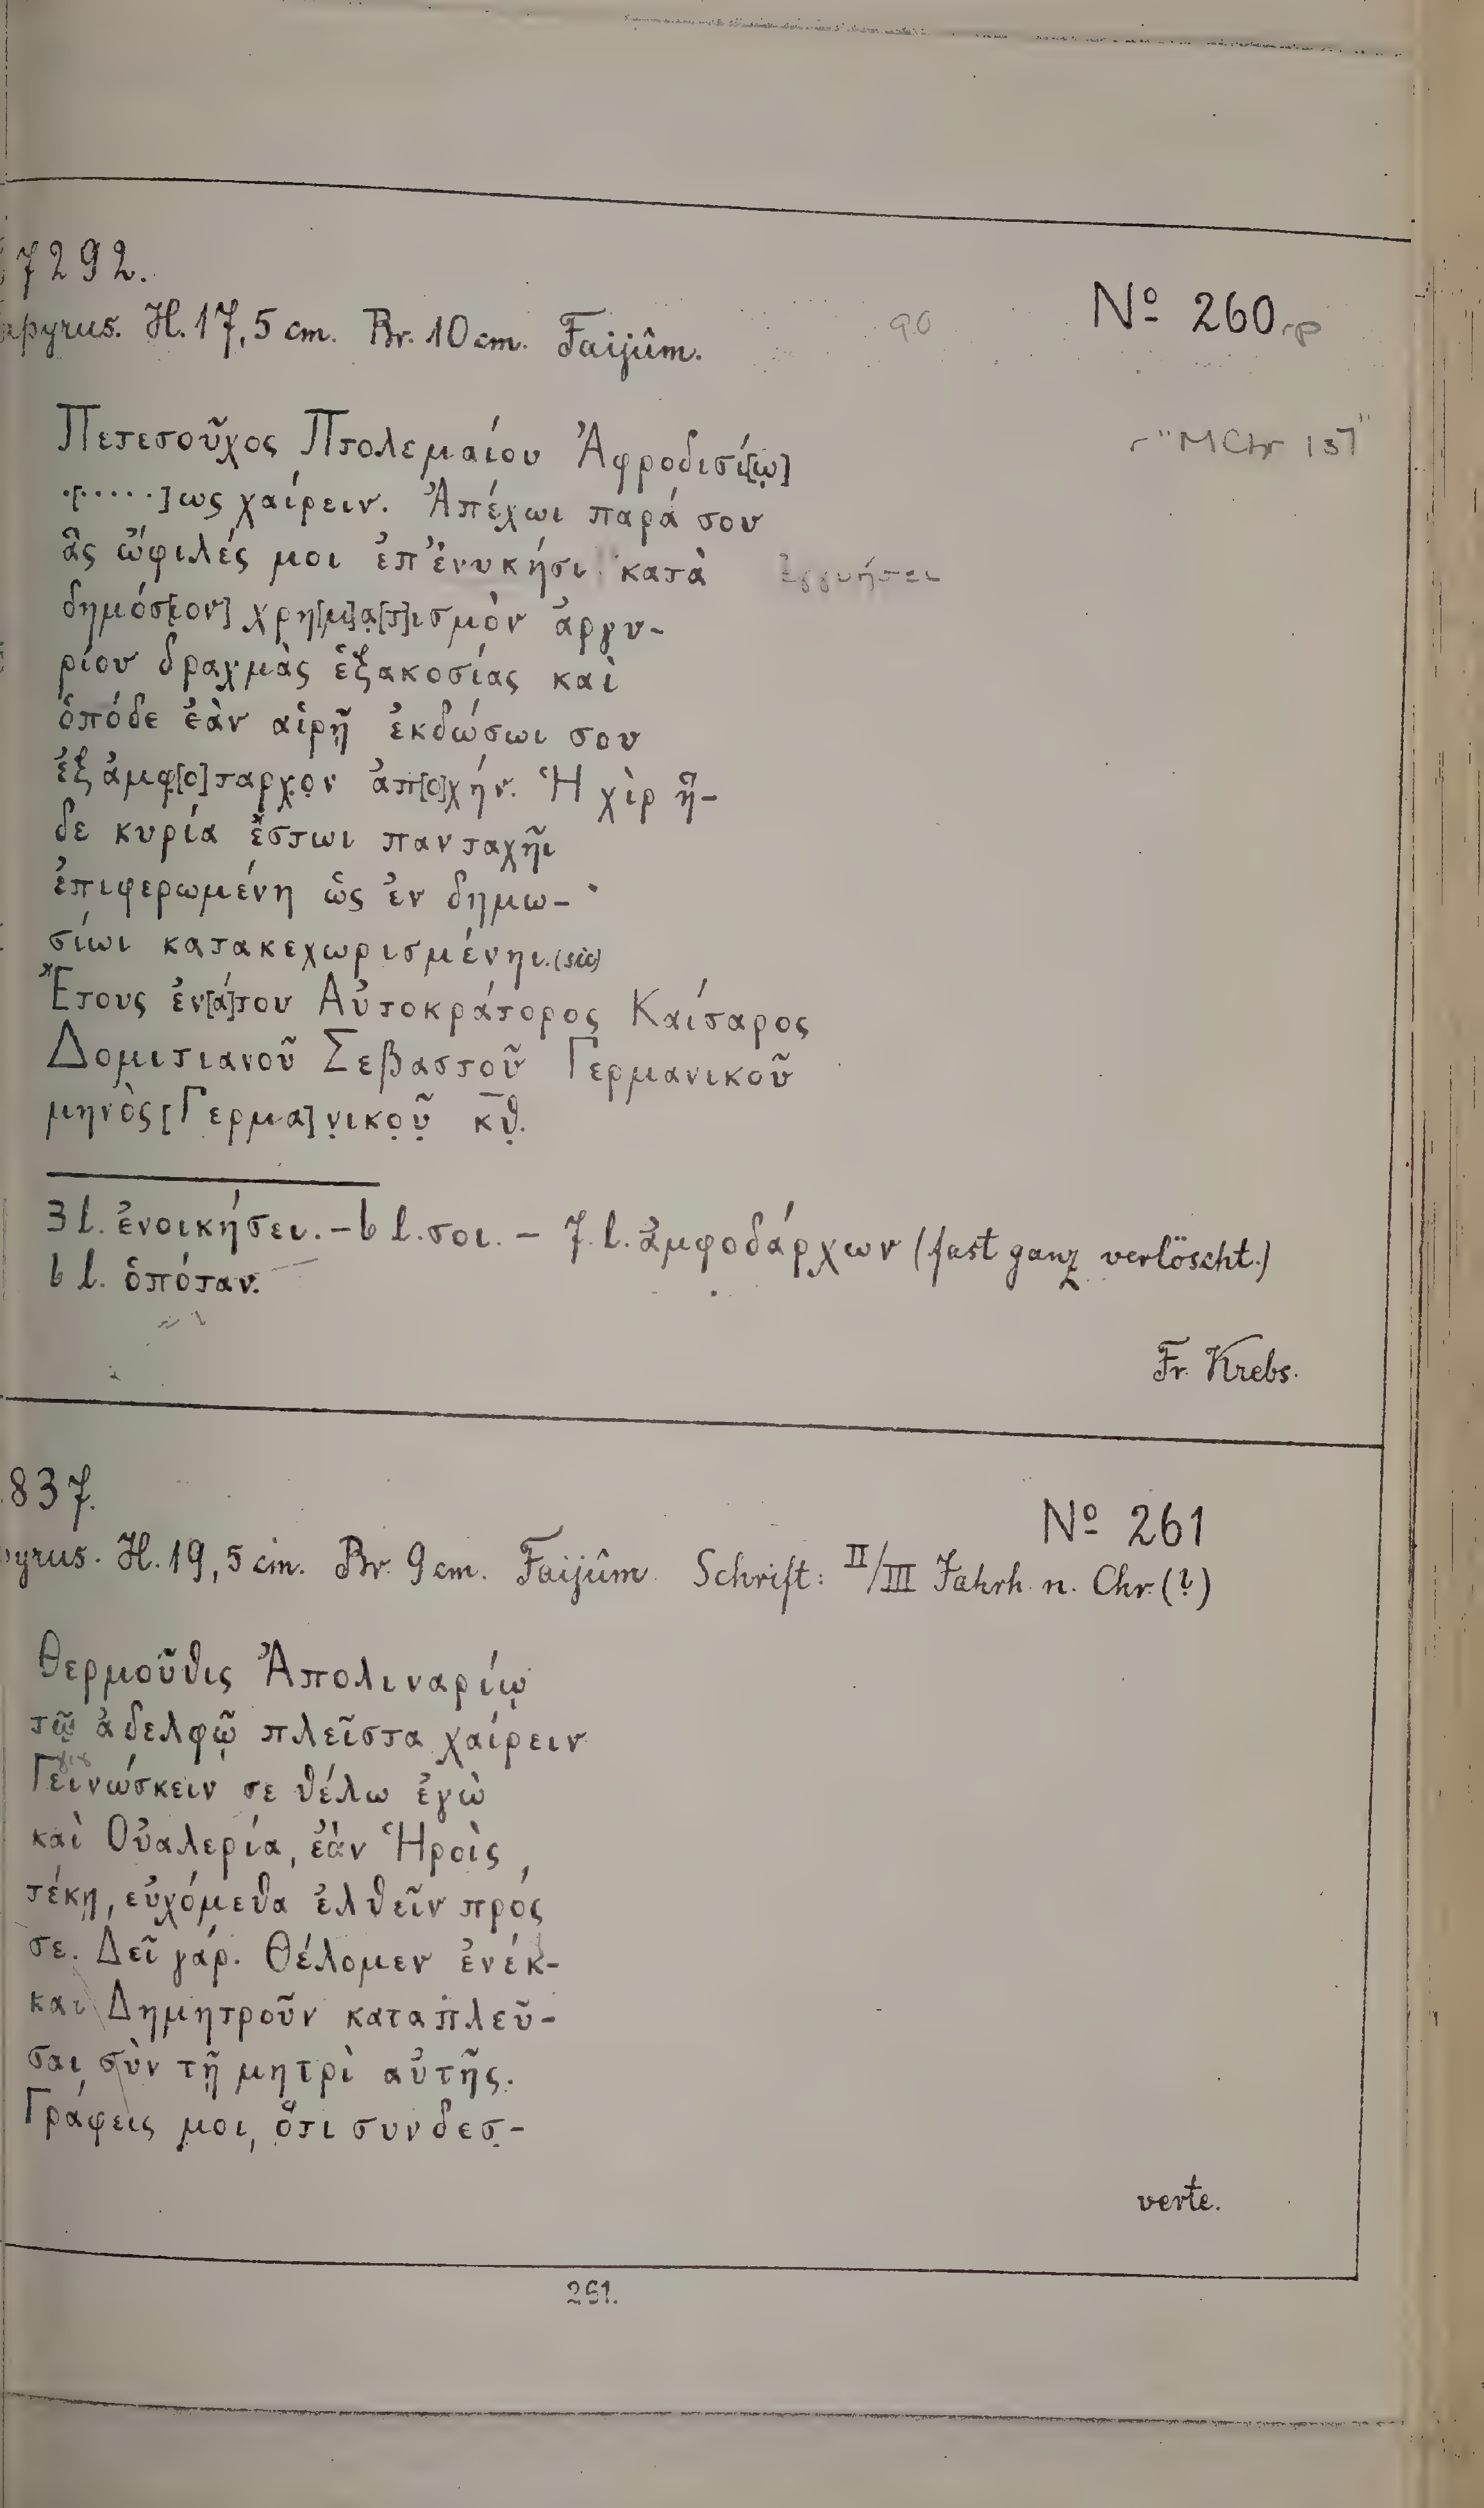 7292.
apyrus. H. 17,5 cm. Br. 10 cm. Faijûm.
90
Nº 260
"MChr 137"
Πετεσοῦχος Πτολεμαίου Ἀφροδισί[ῳ]
.[.....]ως χαίρειν. Ἀπέχωι παρά σου
ἃς ὤφιλές μοι ἐπ' ἐνυκήσι κατὰ
ἐγγυήσει
δημόσ[ιον] χρη[μ]α[τ]ισμὸν ἀργυ-
ρίου δραχμὰς ἑξακοσίας καὶ
ὁπόδε ἐὰν αἱρῇ ἐκδώσωι σου
ἐξ ἀμφ[ο]ταρχον ἀπ[ο]χήν. Ἡ χὶρ ἥ-
δε κυρία ἔστωι πανταχῆι
ἐπιφερωμένη ὡς ἐν δημω-
σίωι κατακεχωρισμένηι. (sic)
Ἔτους ἐν[ά]του Αὐτοκράτορος Καίσαρος
Δομιτιανοῦ Σεβαστοῦ Γερμανικοῦ
μηνὸς [Γερμα]ν̣ικο̣ῦ̣ κ̅θ̣.
3 l. ἐνοικήσει. – 6 l. σοι. – 7. l. ἀμφοδάρχων (fast ganz verlöscht.)
6 l. ὁπόταν.
Fr. Krebs.
837.
pyrus. H. 19,5 cm. Br. 9 cm. Faijûm. Schrift: II/III Jahrh. n. Chr. (?)
Nº 261
Θερμοῦθις Ἀπολιναρίῳ
τῷ ἀδελφῷ πλεῖστα χαίρειν
Γεινώσκειν σε θέλω ἐγὼ
καὶ Οὐαλερία, ἐὰν Ἡροὶς
τέκῃ, εὐχόμεθα ἐλθεῖν πρός
σε. Δεῖ γάρ. Θέλομεν ἐνέκ-
και Δημητροῦν καταπλεῦ-
σαι σὺν τῇ μητρὶ αὐτῆς.
Γράφεις μοι, ὅτι συνδεσ̣-
verte.
261.